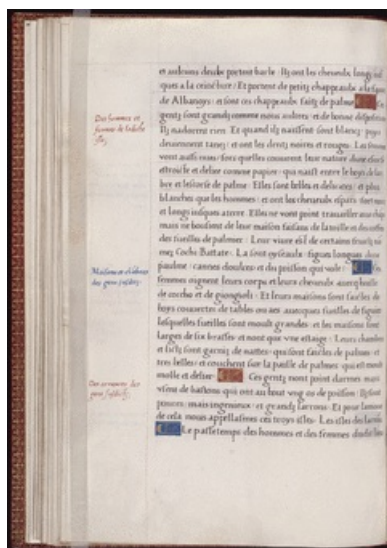 et aulcuns deulx portent barbe Ilz ont les cheveulx longz
ques a la ceincture Et portent de petiz chappeaulx a la
de Albanoys et sont ces chappeaulx faitz de palme
gentz sont grandz comme nous aultres et de bonne disposition
Ilz nadorent rien Et quand ilz naissent sont blancz puys
deviennent tanez et ont les dentz noires et rouges Les femmes
vont aussi nues fors quelles couvrent leur nature dune escorce
estroicte et delice comme papier qui naist entre le boys de lar
bre et lescorse de palme Elles sont belles et delicates et plus
blanches que les hommes et ont les cheveulx espars fort noirs
et longs iusques aterre Elles ne vont point travailler aux champs
mais ne bougent de leur maison faisans de la toille et des
des fueilles de palmier Leur vivre est de certains fruictz
mez Cochi Battate La sont oyseaulx figues longues dune
paulme cannes doulces et du poisson qui vole Les
femmes oignent leurs corps et leurs cheveulx avecq huille
de coccho et de giongioli Et leurs maisons sont faictes de
boys couvertes de tables avecques fueilles de figuier
lesquelles fueilles sont moult grandes et les maisons sont
larges de six brasses et nont que ung estaige Leurs chambres
et lictz sont garniz de nattes que sont faictes de palmes et
tres belles et couchent sur la paille de palmes qui est moult
molle et delice Ces gentz nont point darmes mais
usent de bastons qui ont au bout ung os de poisson Ilz sont
pouvres mais ingenieux et grandz larrons Et pour lamour
de cela nous appellasmes ces troys isles Les isles des larrons
Le passetemps des hommes et des femmes dudict lieu
Des femmes et
Maisons et chambres
des gens susdictz
Des armeures des
gens susdictz